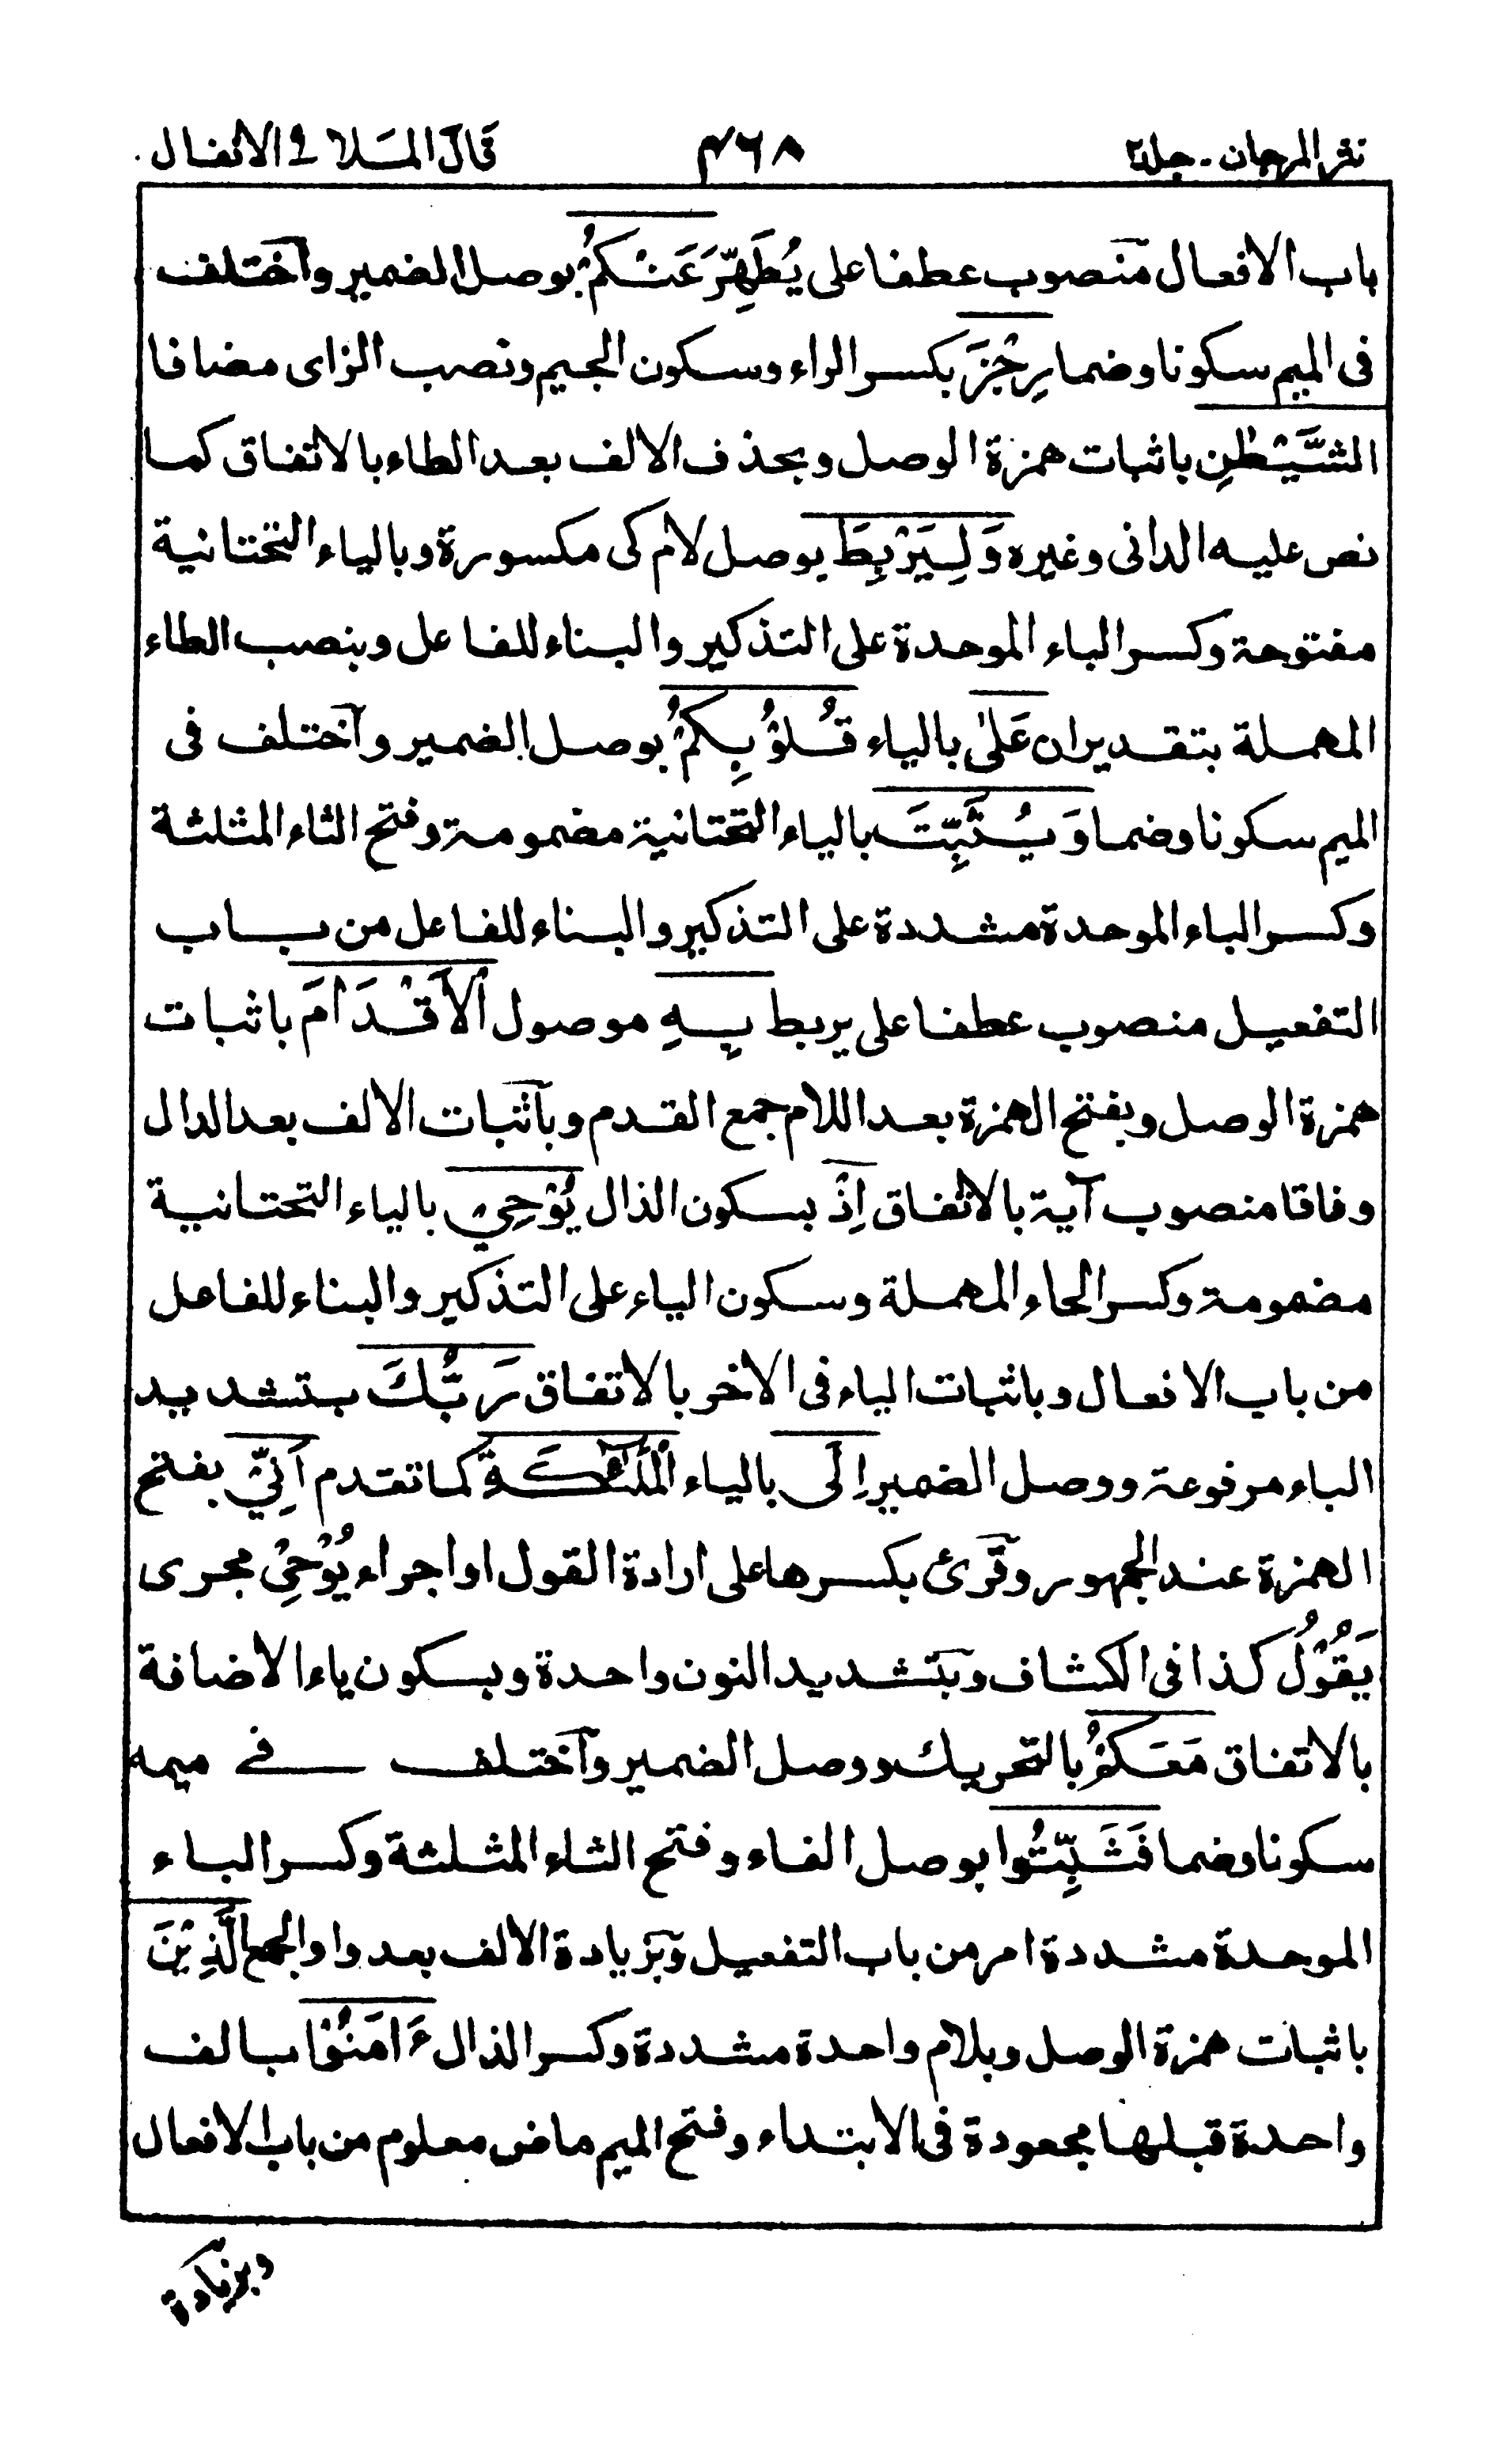 نثر المرجان - جلد ٢ ۴٦٨ قال الملا ٩ الانفال
باب الافعال منصوب عطفا على يُطَهِّرَ عَنْكُمْ بوصل الضمير واختلف
فى الميم سكونا وضما رِجْزَ بكسر الراء وسكون الجيم ونصب الزاى مضافا
الشَّيْطٰنِ باثبات همزة الوصل وبحذف الالف بعد الطاء بالاتفاق كما
نص عليه الدانى وغيره وَلِيَرْبِطَ بوصل لام كى مكسورة وبالياء التحتانية
مفتوحة وكسر الباء الموحدة على التذكير والبناء للفاعل وبنصب الطاء
المهملة بتقدير ان عَلٰى بالياء قُلُوْبِكُمْ بوصل الضمير واختلف فى
الميم سكونا وضما وَيُثَبِّتَ بالياء التحتانية مضمومة وفتح الثاء المثلثة
وكسر الباء الموحدة مشددة على التذكير والبناء للفاعل من باب
التفعيل منصوب عطفا على يربط بِهِ موصول الْاَقْدَامَ باثبات
همزة الوصل وبفتح الهمزة بعد اللام جمع القدم وباثبات الالف بعد الدال
وفاقا منصوب آية بالاتفاق اِذْ بسكون الذال يُوْحِيْ بالياء التحتانية
مضمومة وكسر الحاء المهملة وسكون الياء على التذكير والبناء للفاعل
من باب الافعال وباثبات الياء فى الاخر بالاتفاق رَبُّكَ بتشديد
الباء مرفوعة ووصل الضمير اِلَى بالياء الْمَلٰٓئِكَةِ كما تقدم اَنِّيْ بفتح
الهمزة عند الجمهور وقرئ بكسرها على ارادة القول او اجراء يُوْحِيْ مجرى
يَقُوْلُ كذا فى الكشاف وبتشديد النون واحدة وبسكون ياء الاضافة
بالاتفاق مَعَكُمْ بالتحريك ووصل الضمير واختلف فى ميمه
سكونا وضما فَثَبِّتُوا بوصل الفاء وفتح الثاء المثلثة وكسر الباء
الموحدة مشددة امر من باب التفعيل وبزيادة الالف بعد واو الجمع الَّذِيْنَ
باثبات همزة الوصل وبلام واحدة مشددة وكسر الذال ءَامَنُوْا بالف
واحدة قبلها مجعودة فى الابتداء وفتح الميم ماض معلوم من باب الافعال
وبزيادة